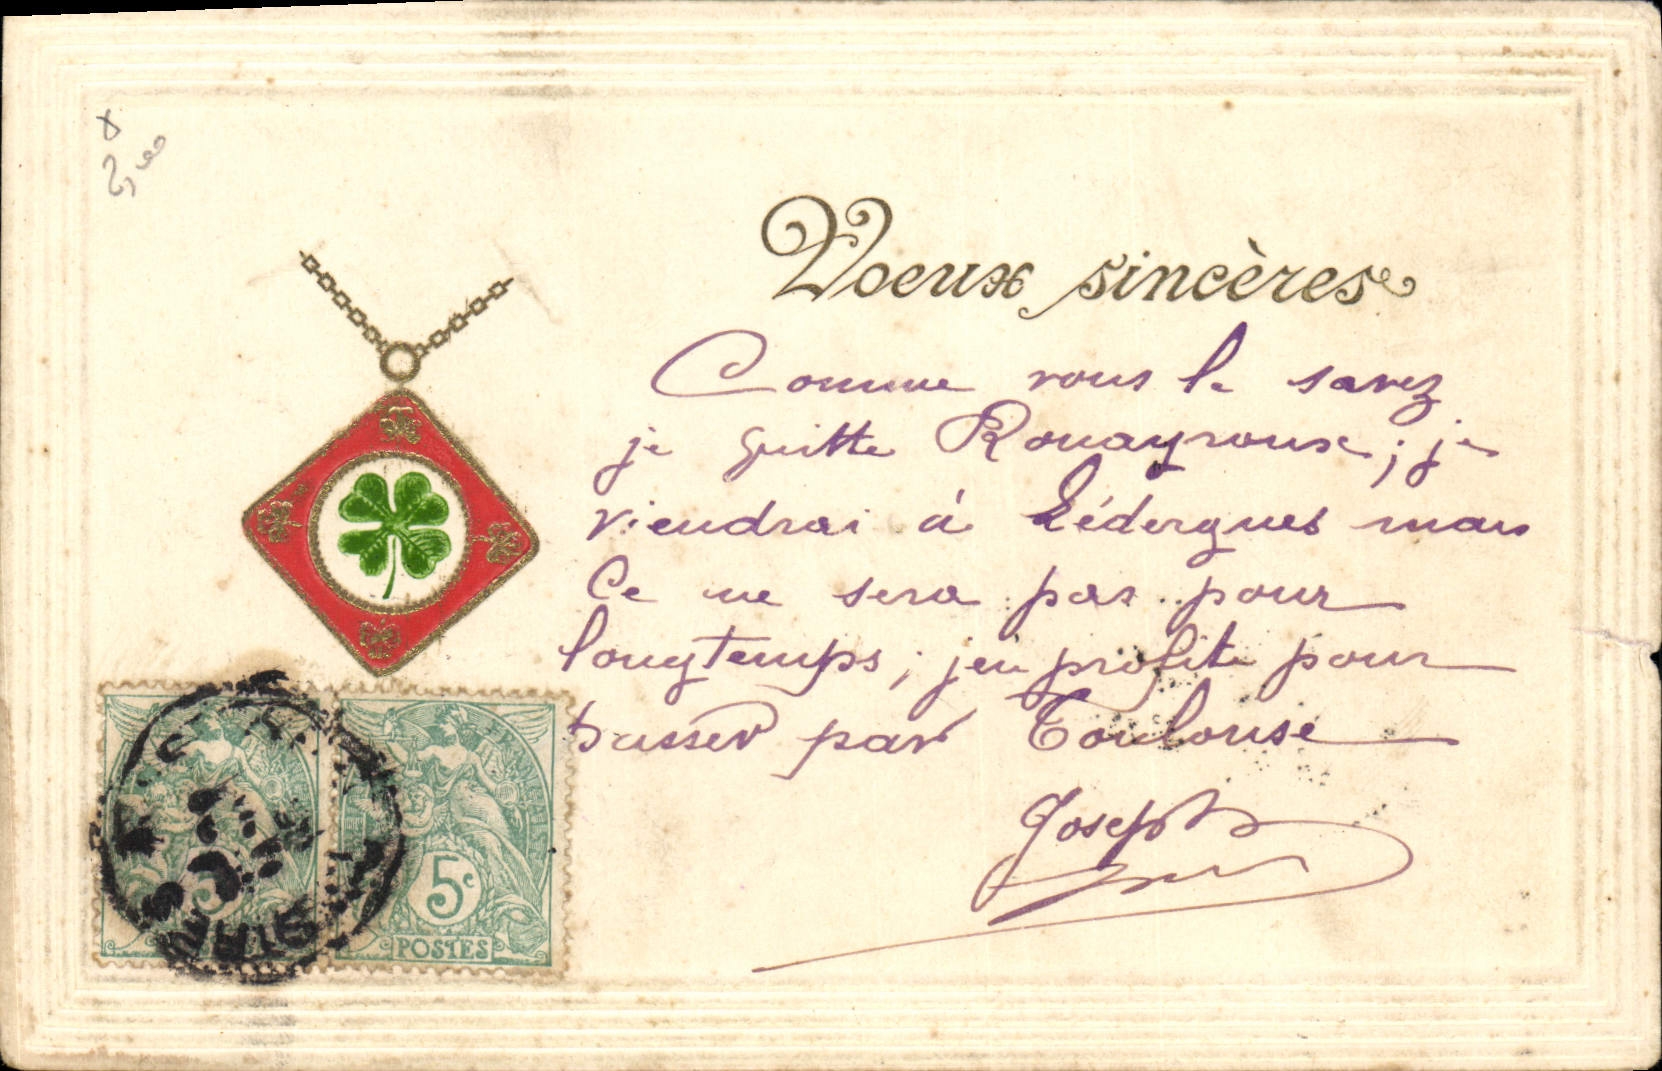 Voeux sincères
Comme vous le savez
je quitte Rouayroux ; je
viendrai à Lédergues mais
Ce ne sera pas pour
longtemps ; j'en profite pour
passer par Toulouse
Joseph
5c
POSTES